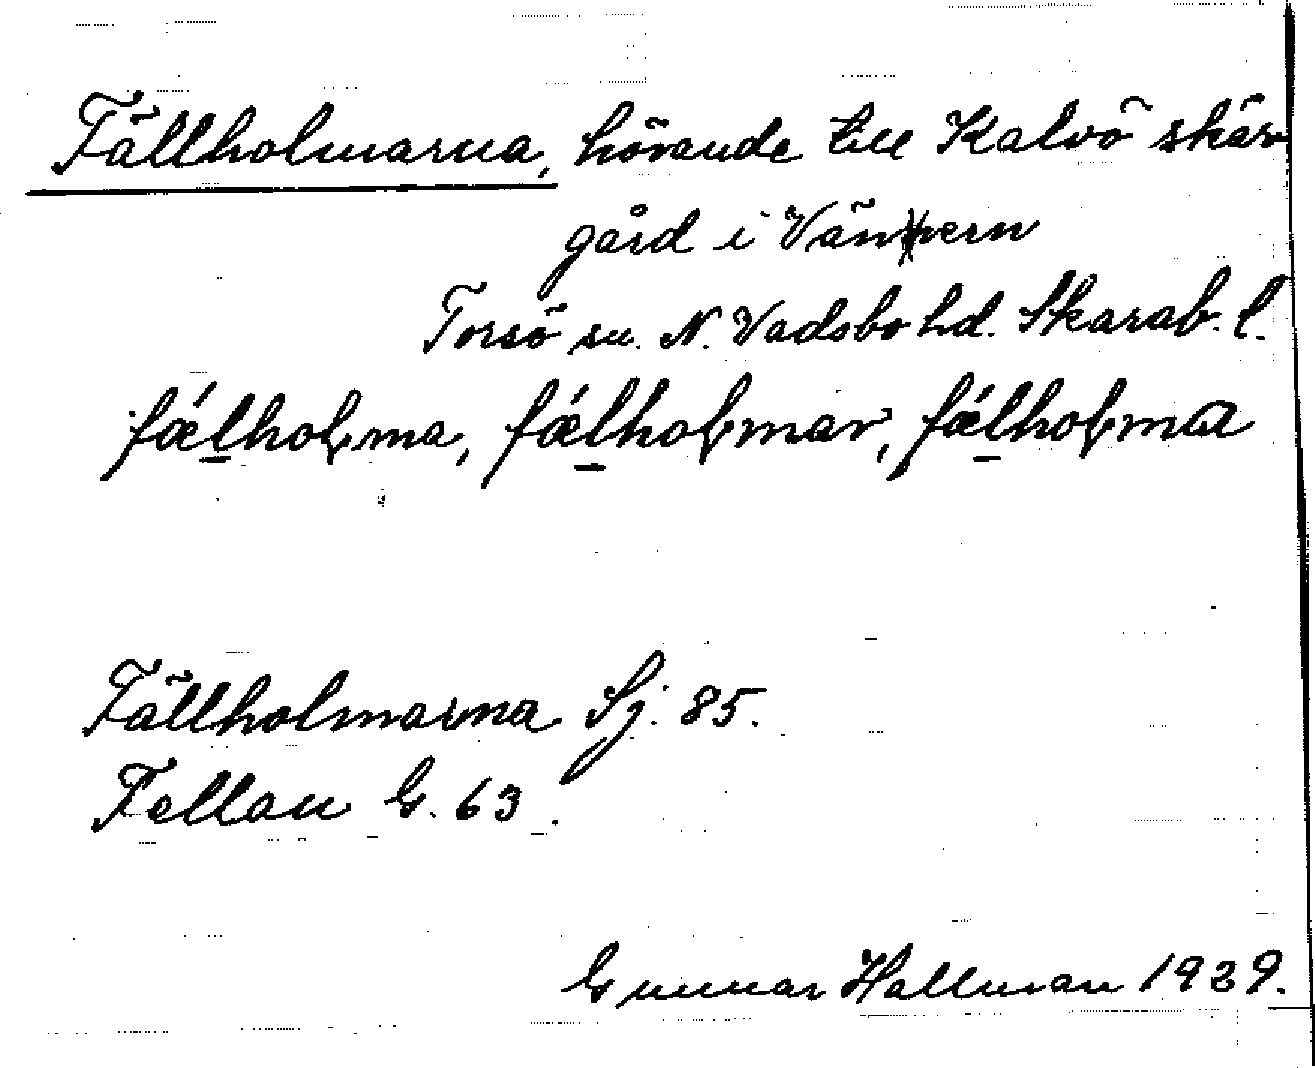 Fällholmarna, hörande till Kalvö skär
gård i Vänern
Torsö sn. N. Vadsbo hd. Skarab. l.
fǽlhoɫma, fǽlhoɫmar, fǽlhoɫmɑ
Fällholmarna Sj. 85.
Fellan G. 63.
Gunnar Hallman 1929.